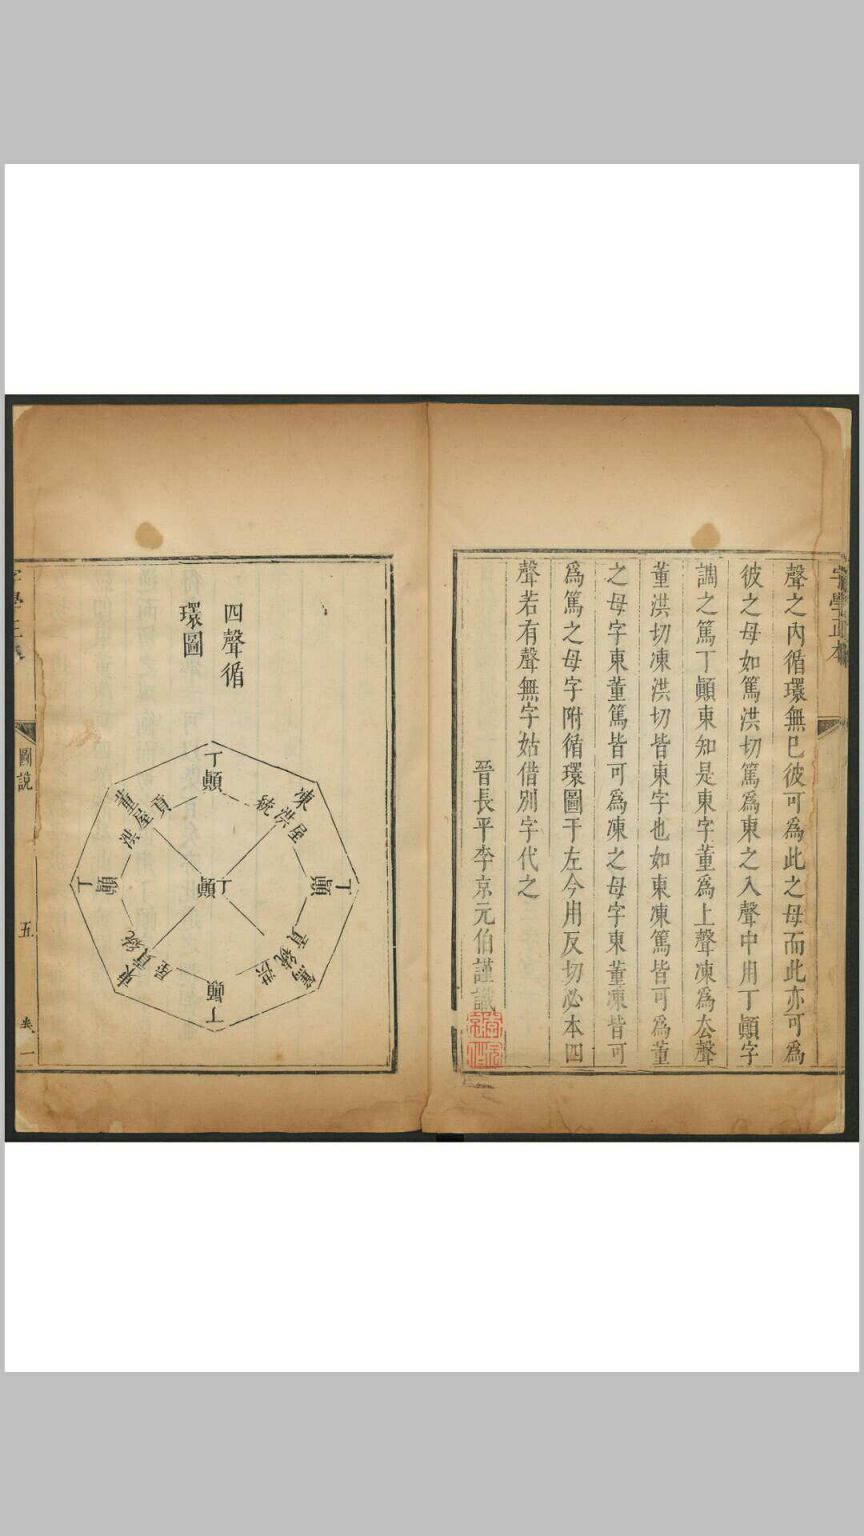 聲之內循環無已彼可為此之母而此亦可為
彼之母如篤洪切篤為東之入聲中用丁顚字
調之篤丁顚東知是東字董為上聲凍為去聲
董洪切凍洪切皆東字也如東凍篤皆可為董
之母字東董篤皆可為凍之母字東董凍皆可
為篤之母字附循環圖于左今用反切必本四
聲若有聲無字姑借別字代之
晉長平李京元伯謹識
字學正本
四聲循
環圖
丁顚
凍洪屋
統
丁顚
篤洪
統貢
丁顚
東貢屋
統
丁顚
董屋洪
貢
丁顚
圖說
五